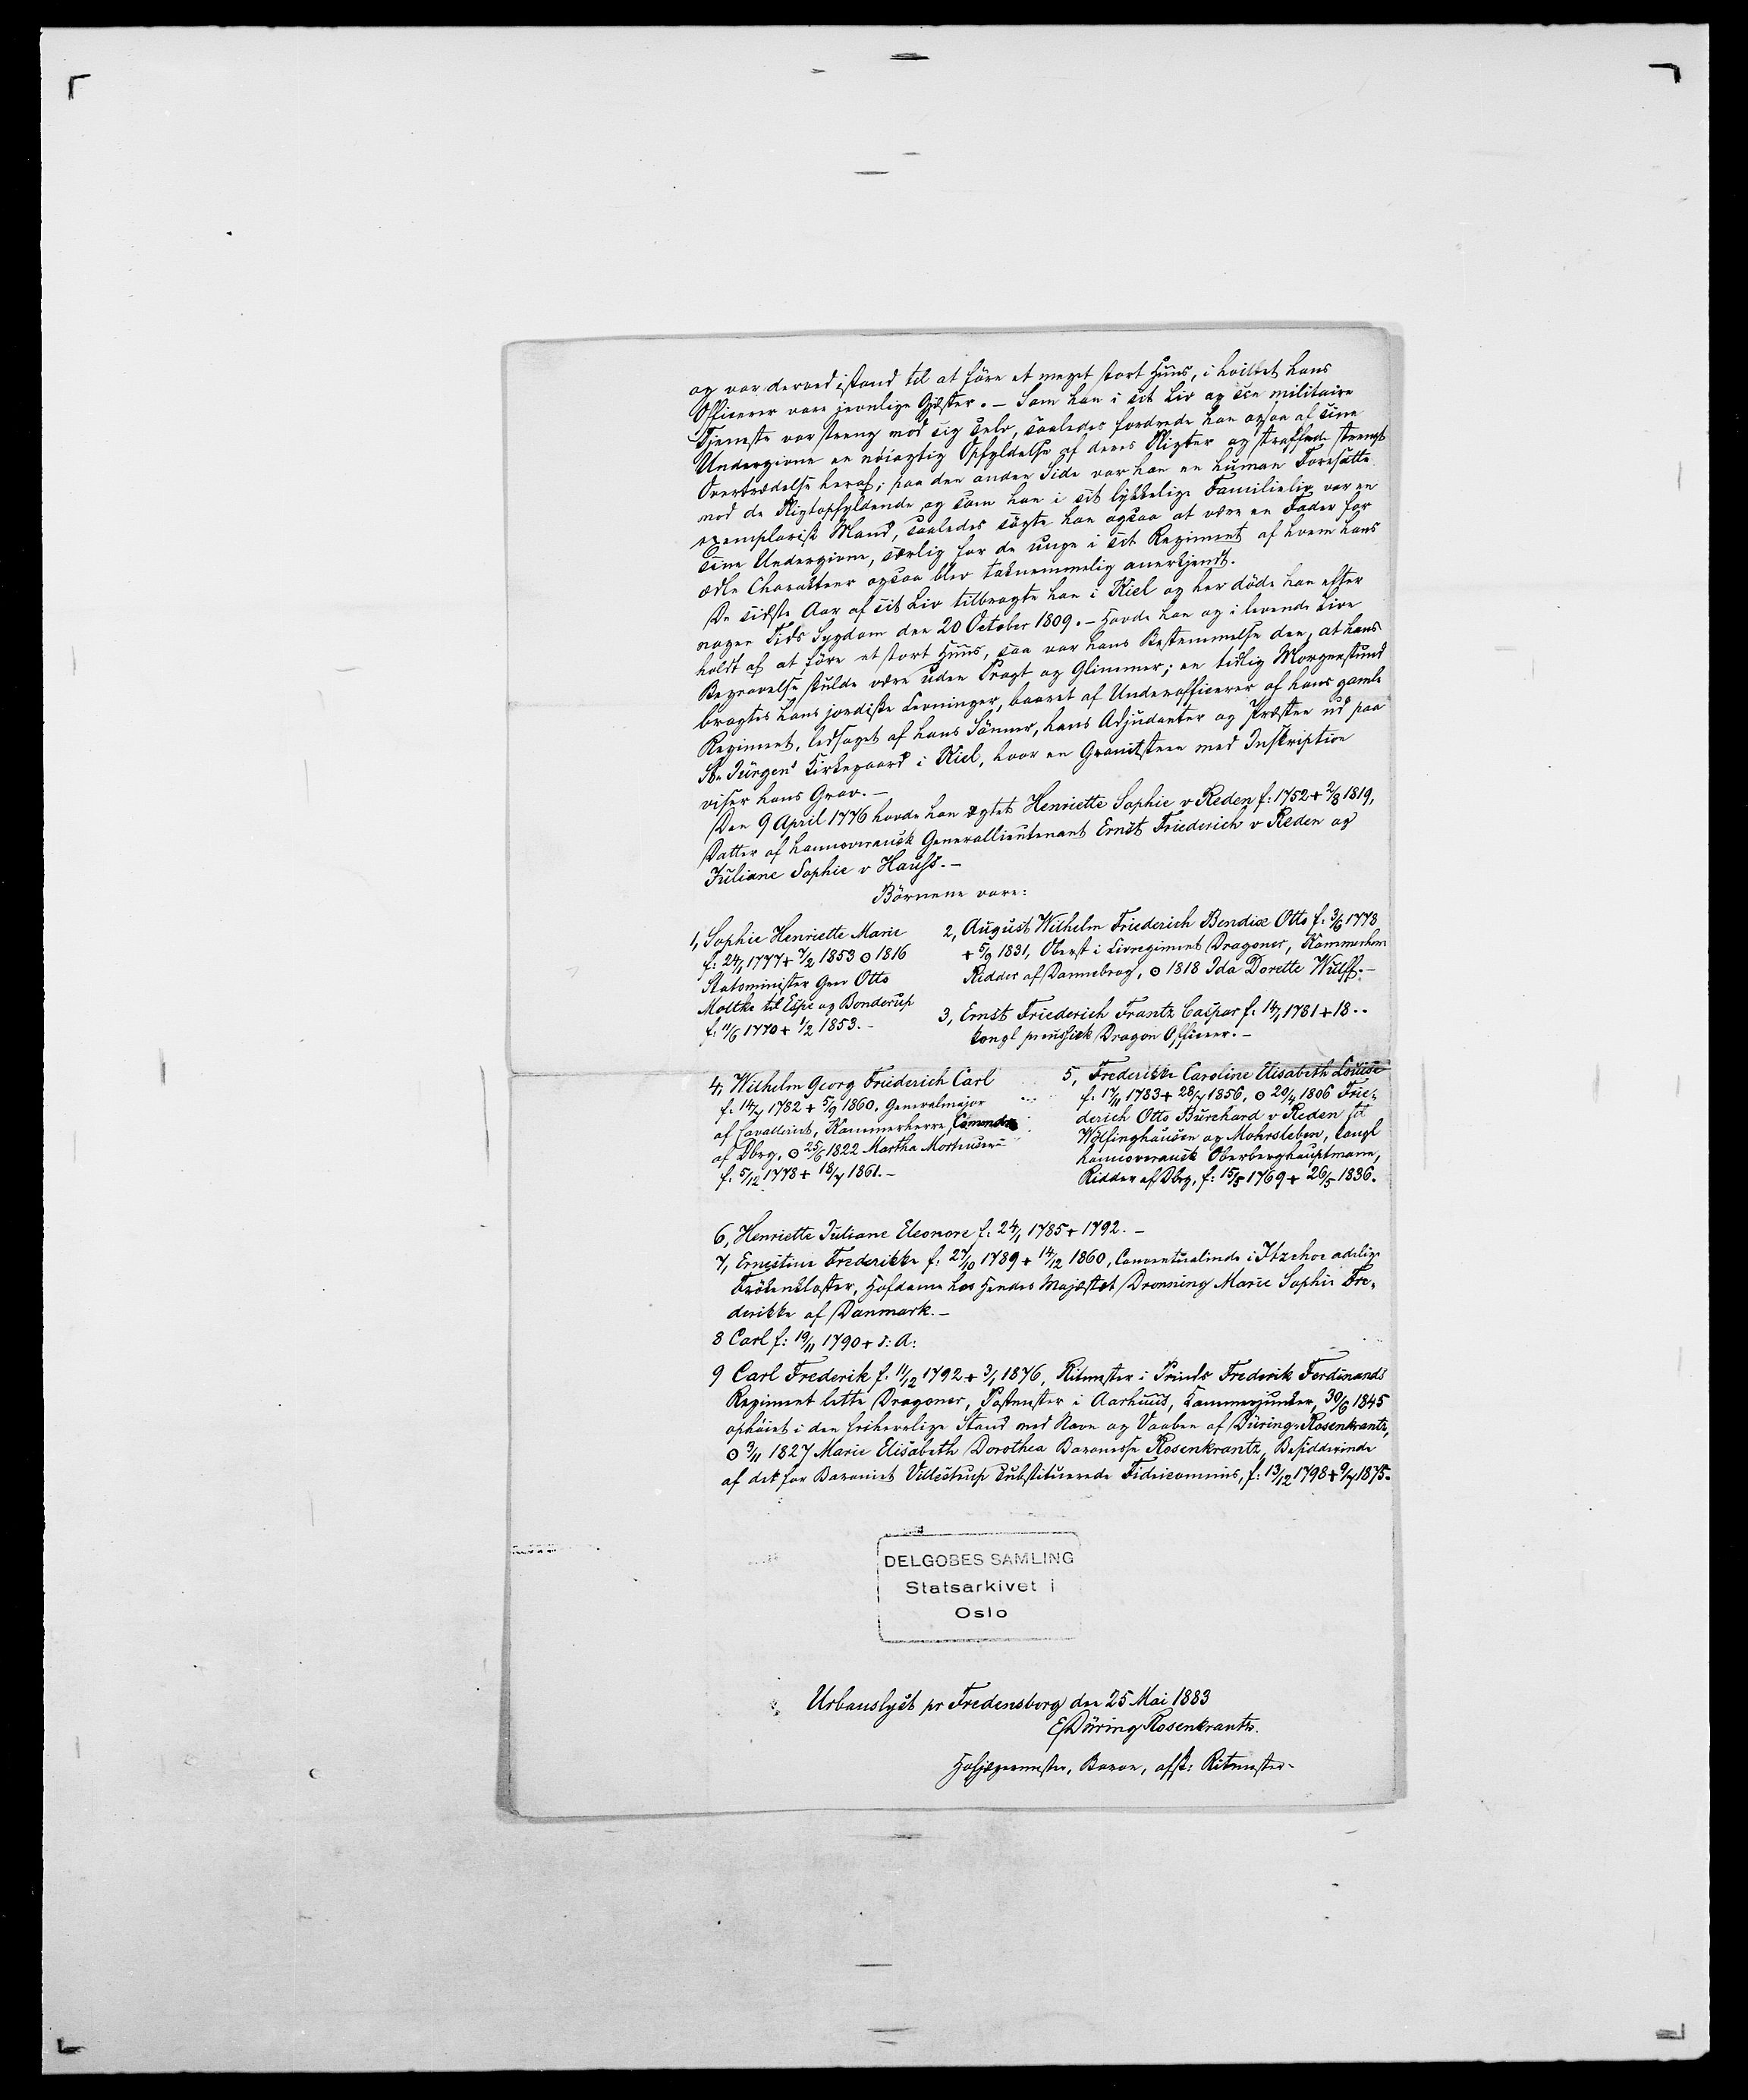 og var derved istand til at före et meget stort Huus, i hvilket hans
Officerer vare jevnlige Gjæster. – Som han i sit Liv og sin militaire
Tjeneste var streng mod sig selv, saaledes fordrede han ogsaa af sine
Undergivne en nöiagtig Opfyldelse af deres Pligter og straffede strengt
Overtrædelse heraf; paa den anden Side var han en human Foresatte
mod de Pligtopfyldende, og som han i sit lykkelige Familieliv var en
exemplarisk Mand, saaledes sögte han ogsaa at være en Fader for
sine Undergivne, særlig for de unge i sit Regiment af hvem hans
ædle Charakteer ogsaa blev taknemmelig anerkjendt.
De sidste Aar af sit Liv tilbragte han i Kiel og her döde han efter
nogen Tids Sygdom den 20 October 1809. – Havde han og i levende Live
holdt af at före et stort Huus, saa var hans Bestemmelse den, at hans
Begravelse skulde være uden Pragt og Glimmer; en tidlig Morgenstund
bragtes hans jordiske Levninger, baaret af Underofficerer af hans gamle
Regiment, ledsaget af hans Sönner, hans Adjudanter og Præsten ud paa
St. Jürgens Kirkegaard i Kiel, hvor en Granitsteen med Inskription
viser hans Grav. –
Den 9 April 1776 havde han ægtet Henriette Sophie v Reden f: 1752 + 2/8 1819,
Datter af hannoveransk Generallieutenant Ernst Friederich v Reden og
Juliane Sophie v Hauss. –
Börnene vare:
1, Sophie Henriette Marie
f: 24/1 1777 + 7/2 1853 ʘ 1816
Statsminister Grev Otto
Moltke til Espe og Bonderup
f: 11/6 1770 + 1/2 1853. –
2, August Wilhelm Friederich Bendix Otto f: 3/6 1778
+ 5/9 1831, Oberst i Livregiment Dragoner, Kammerherre
Ridder af Dannebrog, ʘ 1818 Ida Dorette Wulff. –
3, Ernst Friederich Frantz Caspar f: 14/1 1781 + 18..
kongl preussisk Dragon Officer. –
4, Wilhelm Georg Friederich Carl
f: 14/7 1782 + 5/9 1860, Generalmajor
af Cavalleriet, Kammerherre,
af Dbrg, ʘ 25/6 1822 Martha
f: 5/12 1778 + 18/7 1861. –
5, Frederikke Caroline Elisabeth Louise
f: 17/11 1783 + 28/7 1856, ʘ 20/4 1806 Frie-
derich Otto Burchard v Reden til
Wülfinghausen og Mohrsleben, kongl
hannoveransk Oberberghauptmann,
Ridder af Dbrg, f: 15/5 1769 + 26/5 1836.
6, Henriette Juliane Eleonore f: 24/1 1785 + 1792. –
7, Ernestine Frederikke f: 27/10 1789 + 14/12 1860, Conventualinde i Itzehoe adelige
Frökenkloster, Hofdame hos Hendes Majestæt Dronning Marie Sophie Fre-
derikke af Danmark. –
8 Carl f: 19/11 1790 + s: A:
9 Carl Frederik f: 11/12 1792 + 3/1 1876, Ritmester i Prinds Frederik Ferdinands
Regiment lette Dragoner, Postmester i Aarhuus, Kammerjunker, 30/6 1845
ophöiet i den friherrelige Stand med Navn og Vaaben af Düring-Rosenkrantz,
ʘ 3/11 1827 Marie Elisabeth Dorothea Baronesse Rosenkrantz, Besidderinde
af det for Baroniet Villestrup substituerede Fideicommis, f: 13/12 1798 + 9/7 1875.
DELGOBES SAMLING
Statsarkivet i
Oslo
Urbanslyst pr Fredensborg den 25 Mai 1883
Düring Rosenkrantz.
Hofjægermester, Baron, afsk: Ritmester.